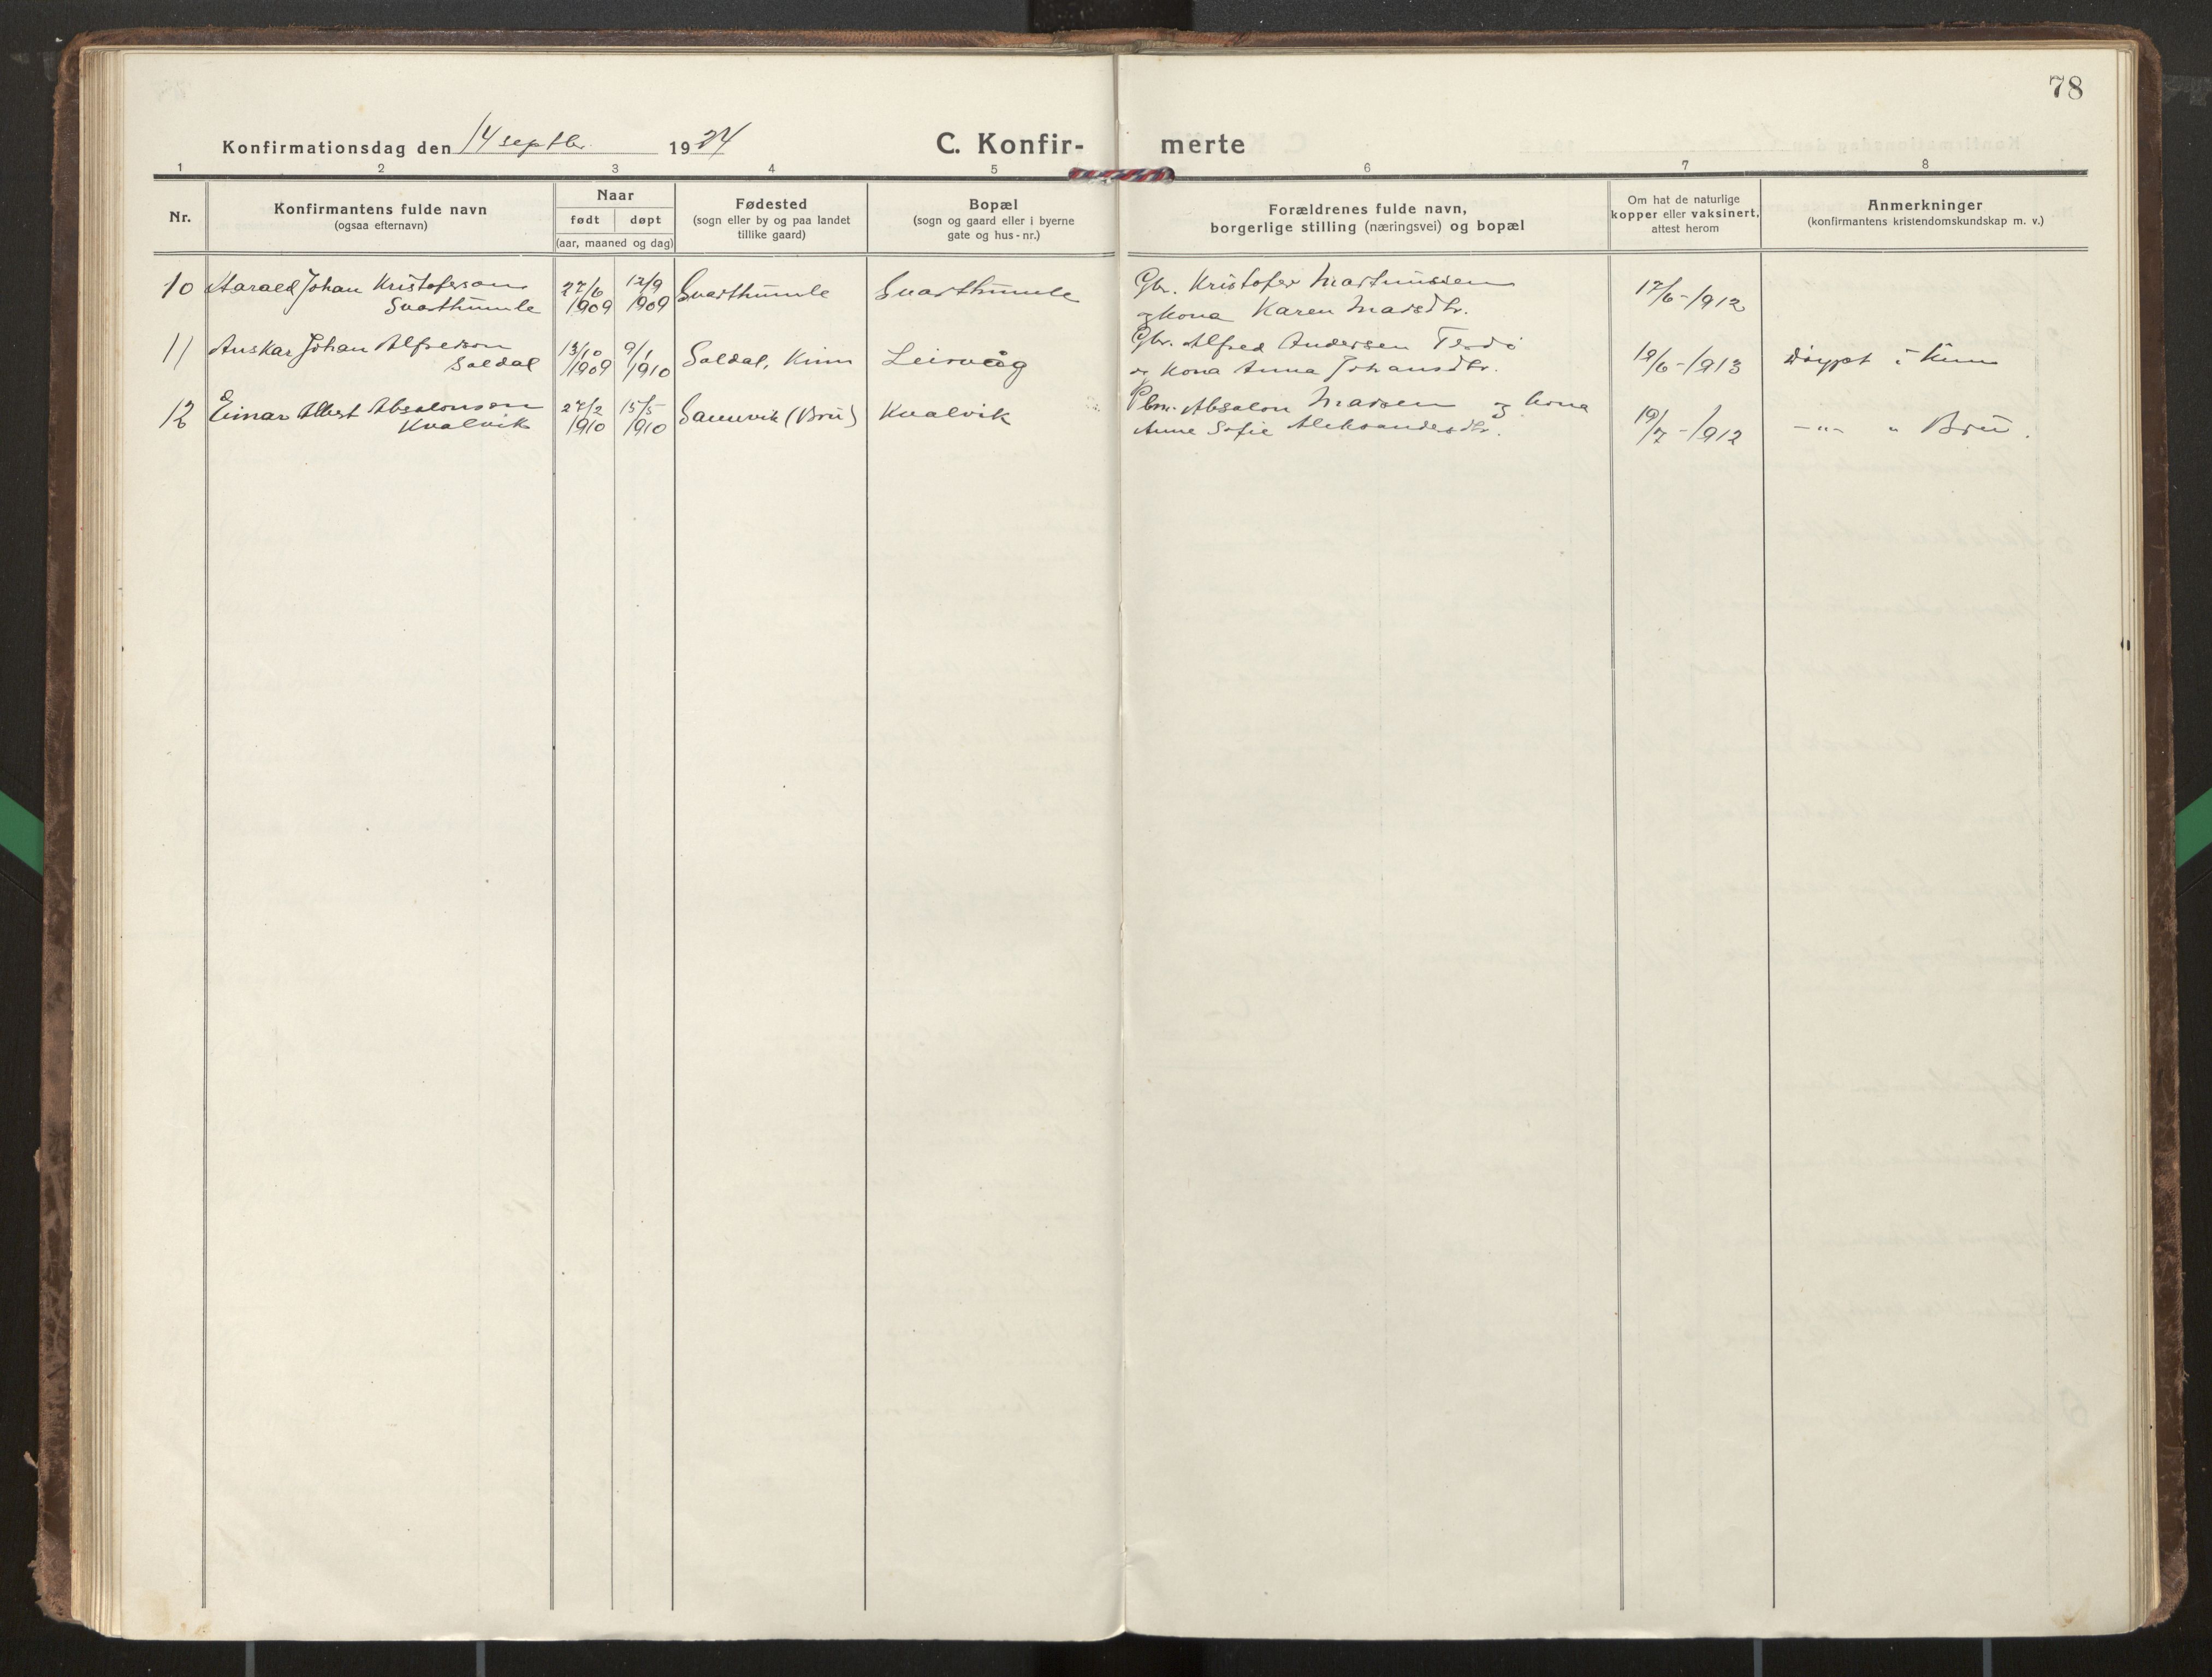 78
Konfirmationsdag den 14 septbr. 1924
C. Konfir- merte
1 2 3 4 5 6 7 8
Nr.
Konfirmantens fulde navn
(ogsaa efternavn)
Naar
født døpt
(aar, maaned og dag)
Fødested
(sogn eller by og paa landet
tillike gaard)
Bopæl
(sogn og gaard eller i byerne
gate og hus-nr.)
Forældrenes fulde navn,
borgerlige stilling (næringsvei) og bopæl
Om hat de naturlige
kopper eller vaksinert,
attest herom
Anmerkninger
(konfirmantens kristendomskundskap m. v.)
10 Harald Johan Kristoferson 27/6 12/9 Svarthumle Svarthumle Gbr. Kristofer Martinussen 17/6-1912
Svarthumle 1909 1909 og kona Karen Madsdtr.
11 Anskar Johan Alfredson 13/10 9/1 Soldal, Kinn Leirvåg Gbr. Alfred Andersen 19/6-1913 Døypt i Kinn
Soldal 1909 1910 og kona Anna Johansdtr.
12 Einar Albert Absalonson 27/2 15/5 (Bru) Kvalvik Absalon Madsen og kona 19/7-1912 -"- " Bru.
Kvalvik 1910 1910 Anne Sofie Aleksandersdtr.